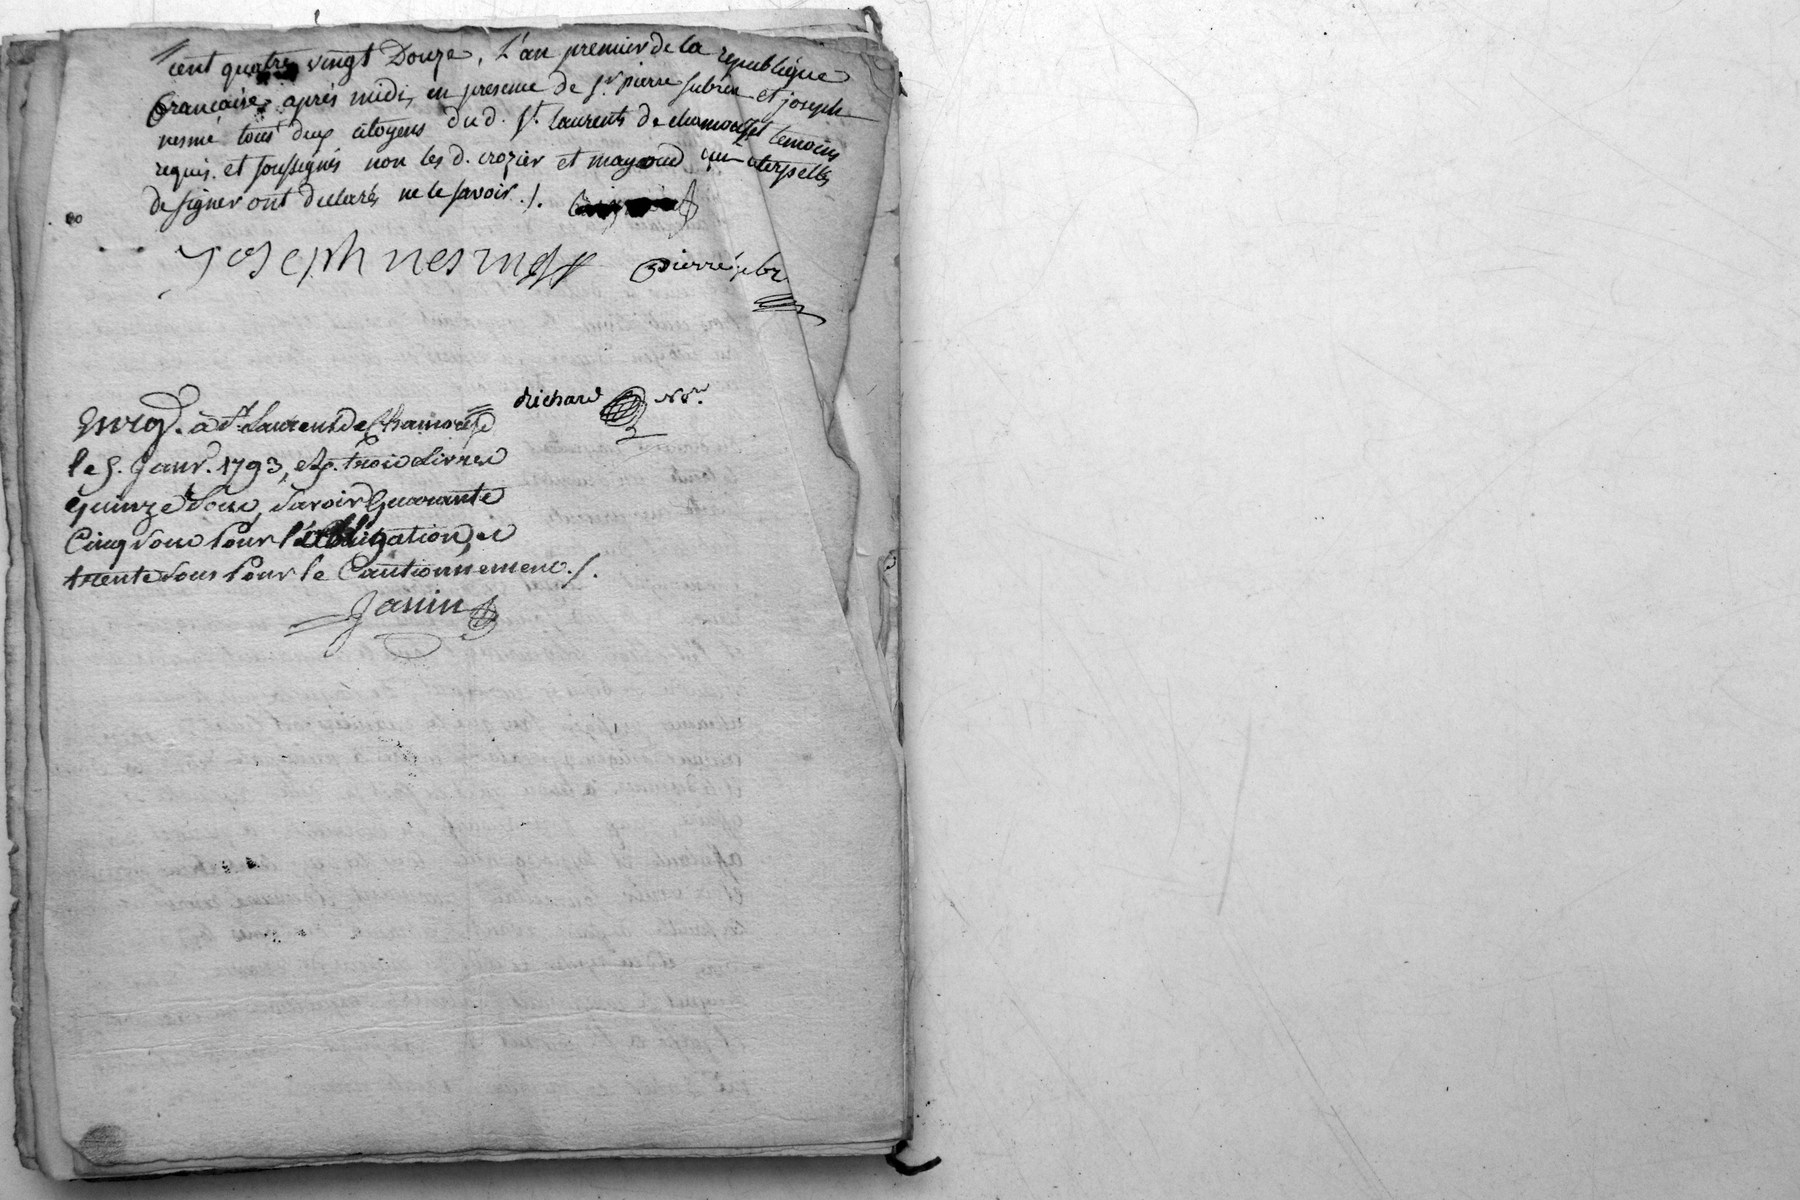 cent quatre vingt Douze, L'an premier de la republique
francaise, après midi, en presence de Sr. pierre subrin et joseph
nesme tous deux citoyens du d. St. laurent de chamousset temoins
requis et soussignés non les d. crozier et mayoud qui interpellés
de signer ont declarés ne le savoir ./.
Joseph nesme pierre
richard Nre.
Enreg. à St. Laurent de Chamousset
le 5. Janv. 1793, R. trois Livres
quinze Sous, Savoir Quarante
Cinq Sous Pour l'obligation, et
trente Sous Pour le Cautionnement ./.
Janin